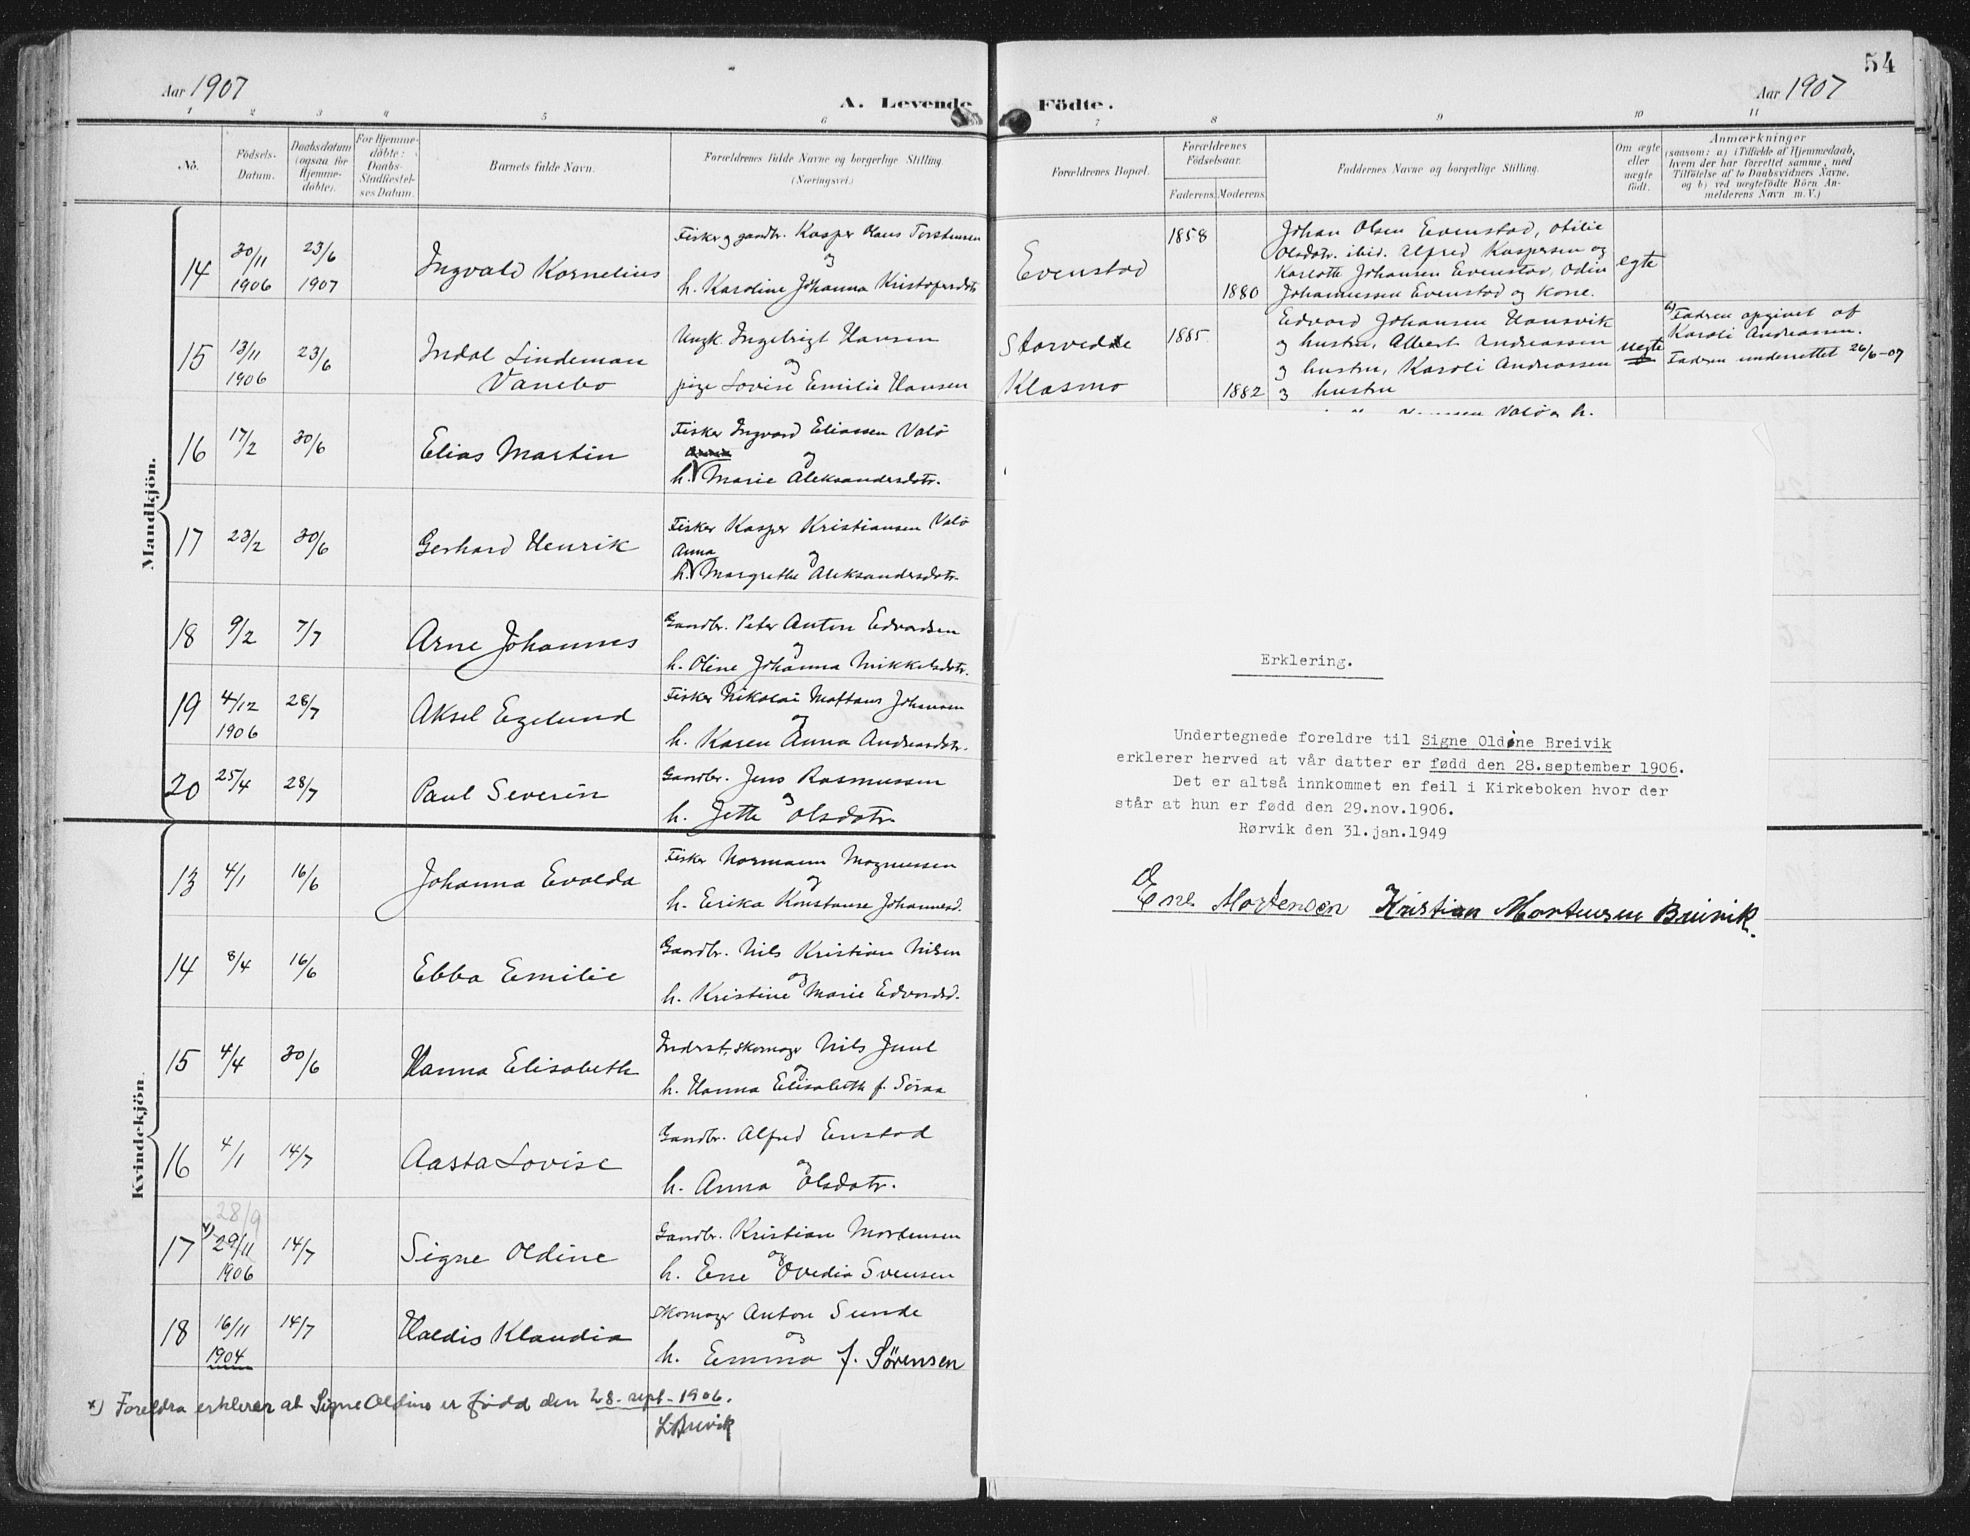 54
Aar 1907
A. Levende Födte.
Aar 1907
1 2 3 4 5 6 7 8 9 10 11
No.
Födsels-
Datum.
Daabsdatum
(ogsaa for
Hjemme-
døbte).
For Hjemme-
døbte:
Daabs-
Stadfæstel-
ses Datum.
Barnets fulde Navn.
Forældrenes fulde Navne og borgerlige Stilling.
(Næringsvei.)
Forældrenes Bopæl.
Forældrenes
Födselsaar.
Faderens. Moderens.
Faddernes Navne og borgerlige Stilling.
Om ægte
eller
uægte
født.
Anmærkninger
(saasom: a) i Tilfælde af Hjemmedaab,
hvem der har forrettet samme, med
Tilföielse af to Daabsvidners Navne,
og b) ved uægtefödte Börn An-
melderens Navn m. V.)
Mandkjön.
14 30/11 1906 23/6 1907 Ingvald Kornelius
Fisker og gaardbr. Kasper Olaus Torstensen
og
h. Karoline Johanna Kristofersdtr
Evenstad 1858 1880
Johan Olsen Evenstad, Otilie
Olsdatr. ibid. Alfred Kaspersen og
Karlotte Johansen Evenstad, Odin
Johannessen Evenstad og kone.
egte
15 13/11 1906 23/6 Indal Lindeman
Vanebo
Ungk. Ingebrigt Hansen
og
pige Lovise Emilie Hansen
Storvedde 1885
Klasmo 1882
Edvard Johansen Hansvik
og hustru, Albert Andreassen
og hustru, Karoli Andreassen
og hustru
uegte
b) Fadren opgivet af
Karoli Andreassen.
Fadren underrettet 26/6-07
16 17/2 30/6 Elias Martin
Fisker Ingvard Eliassen Valø
og
h. Marie Aleksandersdatr.
Valø og h.
17 23/2 30/6 Gerhard Henrik
Fisker Kasper Kristiansen Valø
Anna og
h. Margrethe Aleksandersdatr.
18 9/2 7/7 Arne Johannes
Gaardbr. Peter Anton Edvardsen
og
h. Oline Johanna Mikkelsdatr.
19 4/12 1906 28/7 Aksel Egelund
Fisker Nikolai Johansen
og
h. Karen Anna Andreasdatr.
20 25/4 28/7 Paul Severin
Gaardbr. Jens Rasmussen
og
h. Jette Olsdatr
Kvindekjön.
13 4/1 16/6 Johanna Evalda
Fisker Normann Magnussen
og
h. Erika Konstanse Johannesd.
14 8/4 16/6 Ebba Emilie
Gaardbr. Nils Kristian Nilsen
og
h. Kristine Marie Edvardsd.
15 4/4 30/6 Hanna Elisabeth
Inderst, skomager Nils Juul
og
h. Hanna Elisabeth f. Søraa
16 4/1 14/7 Aasta Lovise
Gaardbr. Alfred Enstad
og
h. Anna Olsdatr.
28/9
17 x) 29/11 1906 14/7 Signe Oldine
Gaardbr. Kristian Mortensen
og
h. Ene Ovedia Svensen
18 16/11 1904 14/7 Haldis Klaudia
Skomager Anton Sunde
og
h. Emma f. Sørensen
x) Foreldra erklerer at Signe Oldine er född den 28. sept. 1906.
LBreivik
Erklering.
Undertegnede foreldre til Signe Oldine Breivik
erklerer herved at vår datter er fødd den 28.september 1906.
Det er altså innkommet en feil i Kirkeboken hvor der
står at hun er fødd den 29.nov.1906.
Rørvik den 31.jan.1949
Ene Mortensen Kristian Mortensen Breivik.